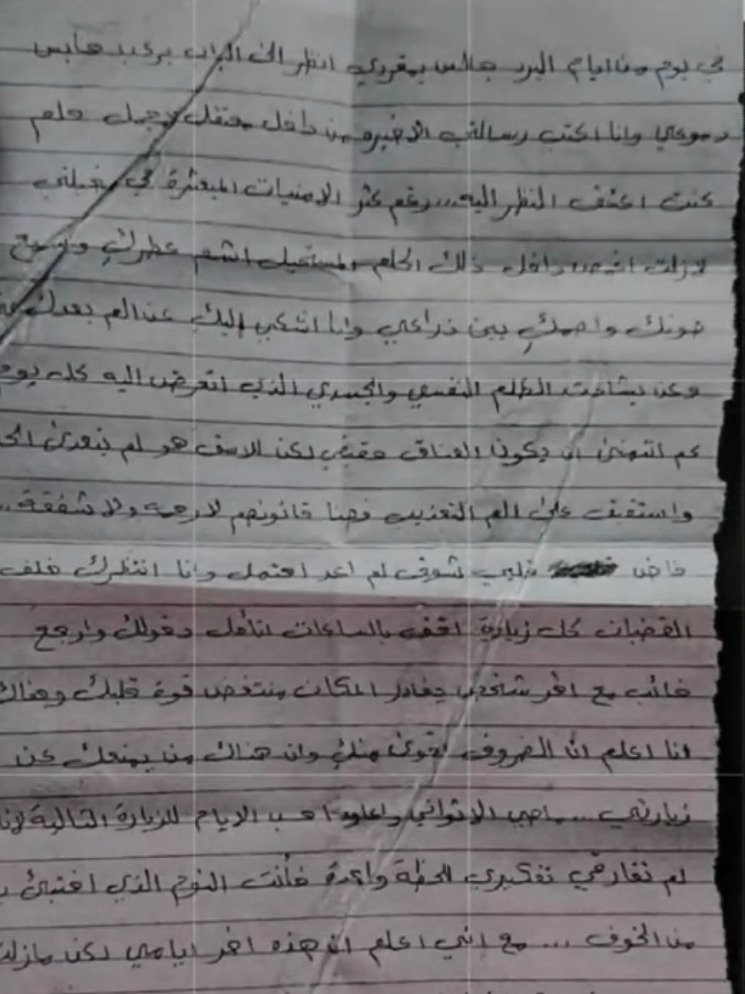 في يوم من ايام البرد جالس بمفردي انظر الى الباب
دموعي وانا اكتب رسالتي الاخيره من طفل معتقل لاجمل حلم
كنت اخطف النظر اليه... رغم كثر الامنيات المبعثرة في مخيلتي
لازلت داخل ذلك الحلم المستحيل اشم عطركِ واسمع
صوتك واضمكِ بين ذراعي وانا اشكي اليك عن الم بعدك
وعن بشاعت الظلم النفسي والجسدي الذي اتعرض اليه كل يوم
كم اتمنى ان يكون العناق حقيقي لكن الاسف هو لم يتعدى
واستفيق على الم التعذيب فهنا قانونهم لا رحمه ولا شفقة..
فاض قلبي شوق لم اعد احتمل وانا انتظرك خلف
القضبان كل زيارة اقف بالساعات اتأمل دخولك وارجع
خائب مع اخر شخص يغادر المكان قوة قلبك وهناك
انا اعلم انَّ الضروف اقوى منكِ وان هناك من يمنعك عن
زيارتي.... الا ثواني واعاود احسب الايام للزيارة التالية
لم تفارقي تفكيري لحظة واحدة فأنت الذي اختبئ
من الخوف ... مع انني اعلم ان هذه اخر ايامي لكن مازلت